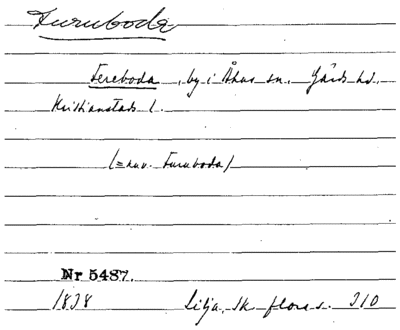 Furuboda
Fereboda, by i Åhus sn. Gärds hd.
Kristianstads l.
(= nuv. Furuboda)
Nr 5487.
1838 Lilja, Sk flora s. 310